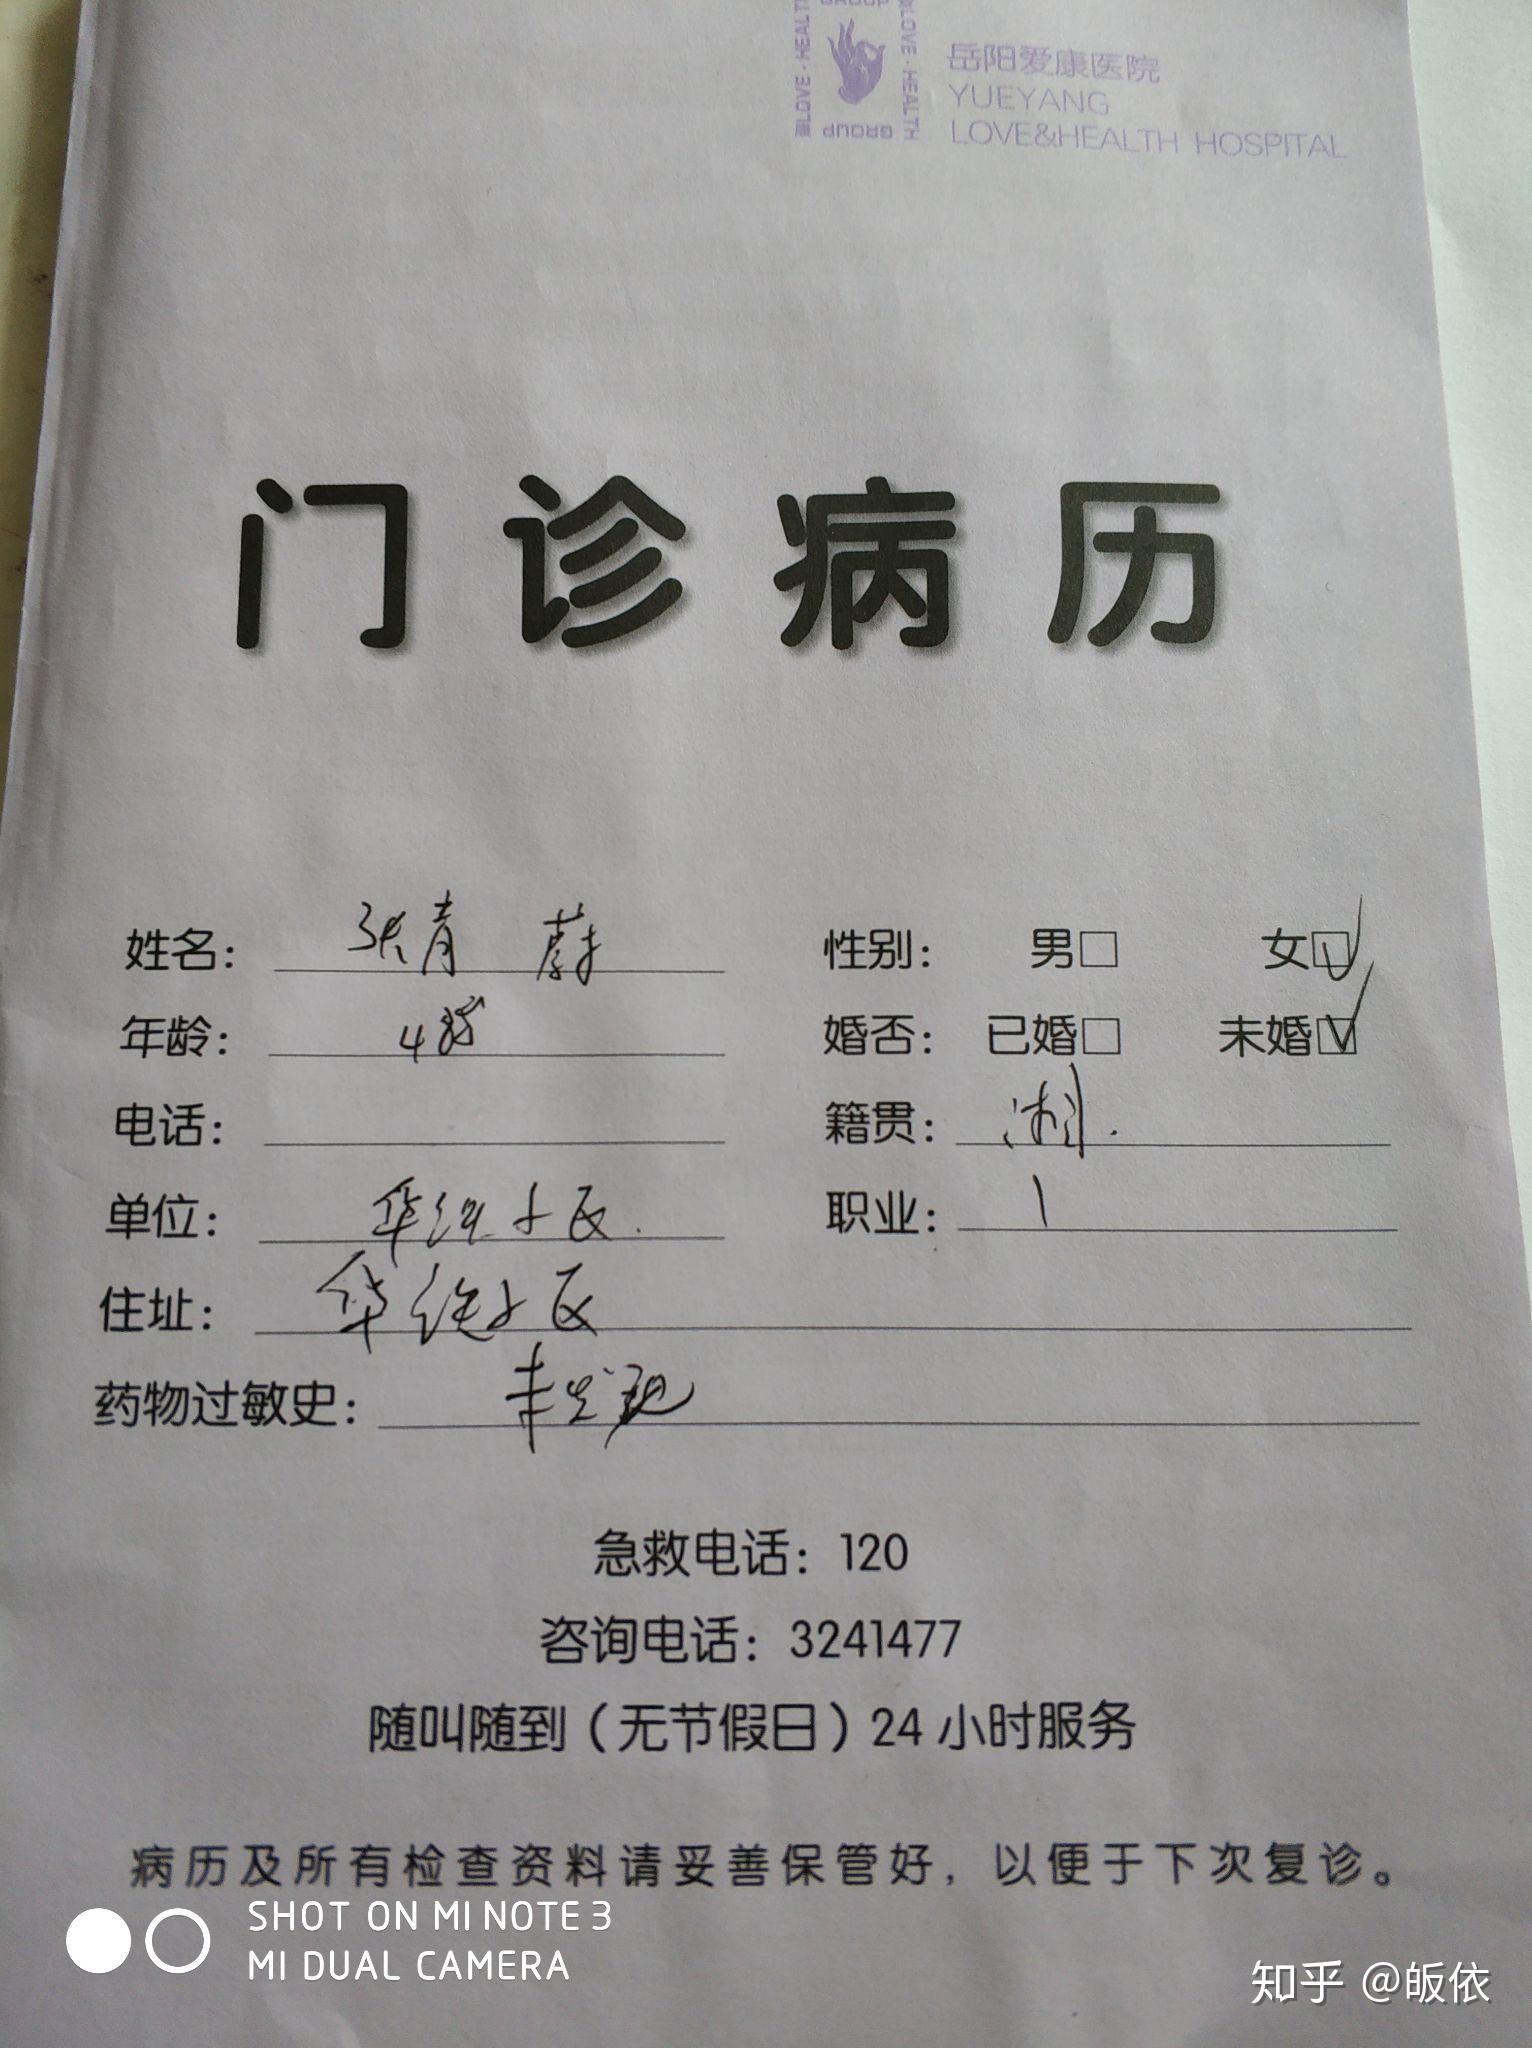 GROUP
LOVE·HEALTH
LOVE·HEALTH
GROUP
岳阳爱康医院
YUEYANG
LOVE&HEALTH HOSPITAL
门诊病历
姓名： 张青 蔚 性别： 男□ 女☑
年龄： 4岁 婚否： 已婚□ 未婚☑
电话： 籍贯： 湘.
单位： 华 小区. 职业： \
住址： 华 小区
药物过敏史： 未发现
急救电话：120
咨询电话：3241477
随叫随到（无节假日）24小时服务
病历及所有检查资料请妥善保管好，以便于下次复诊。
SHOT ON MI NOTE 3
MI DUAL CAMERA
知乎 @皈依